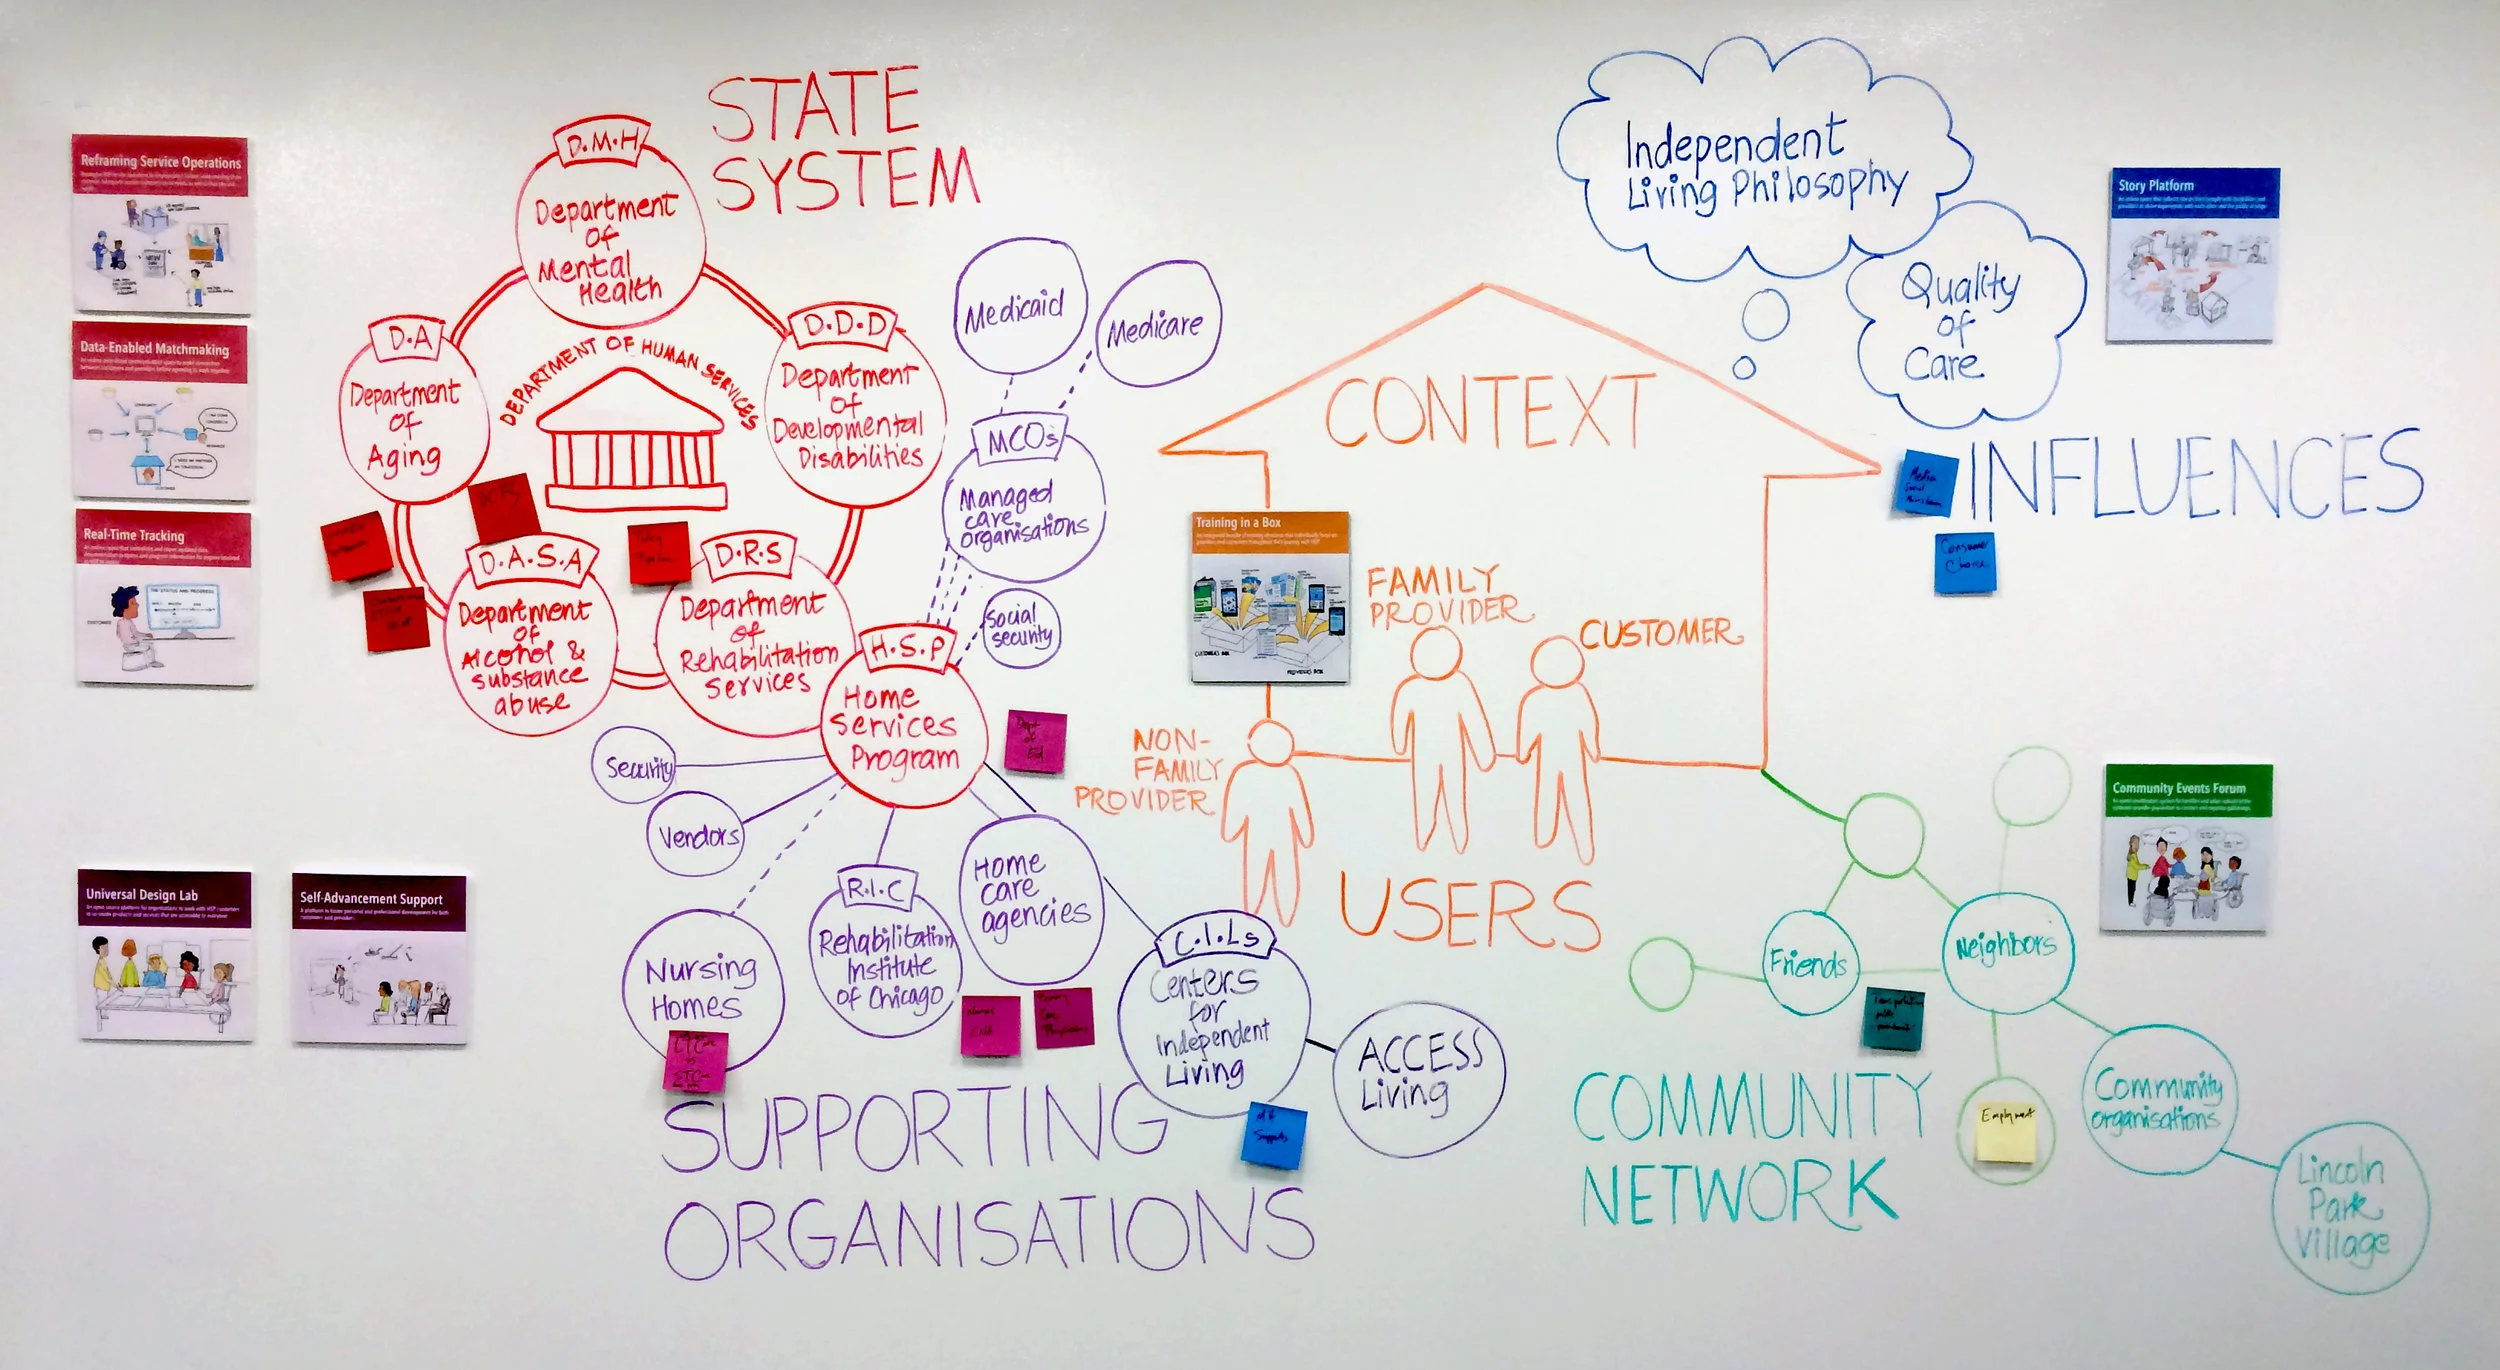 STATE
SYSTEM
D.M.H
Department
of
Mental
Health
D.A
Department
of
Aging
D.D.D
Department
of
Developmental
Disabilities
DEPARTMENT OF HUMAN SERVICES
D.A.S.A
Department
of
Alcohol &
substance
abuse
D.R.S
Department
of
Rehabilitation
Services
H.S.P
Home
Services
Program
DCFS
Medicaid
Medicare
MCOs
Managed
care
organisations
Social
security
Dept
of
Ed
Security
Vendors
Nursing
Homes
R.I.C
Rehabilitation
Institute
of Chicago
Home
care
agencies
C.I.Ls
Centers
for
Independent
Living
ACCESS
Living
Primary
Care
Physicians
SUPPORTING
ORGANISATIONS
CONTEXT
FAMILY
PROVIDER
CUSTOMER
NON-
FAMILY
PROVIDER
USERS
Independent
Living Philosophy
Quality
of
Care
INFLUENCES
Media
Social
Consumer
Choice
Friends
Neighbors
Employment
Community
organisations
Lincoln
Park
Village
COMMUNITY
NETWORK
Reframing Service Operations
Data-Enabled Matchmaking
Real-Time Tracking
THE STATUS AND PROGRESS
CUSTOMER
Universal Design Lab
Self-Advancement Support
Training in a Box
CUSTOMER'S BOX
PROVIDER'S BOX
Story Platform
Community Events Forum